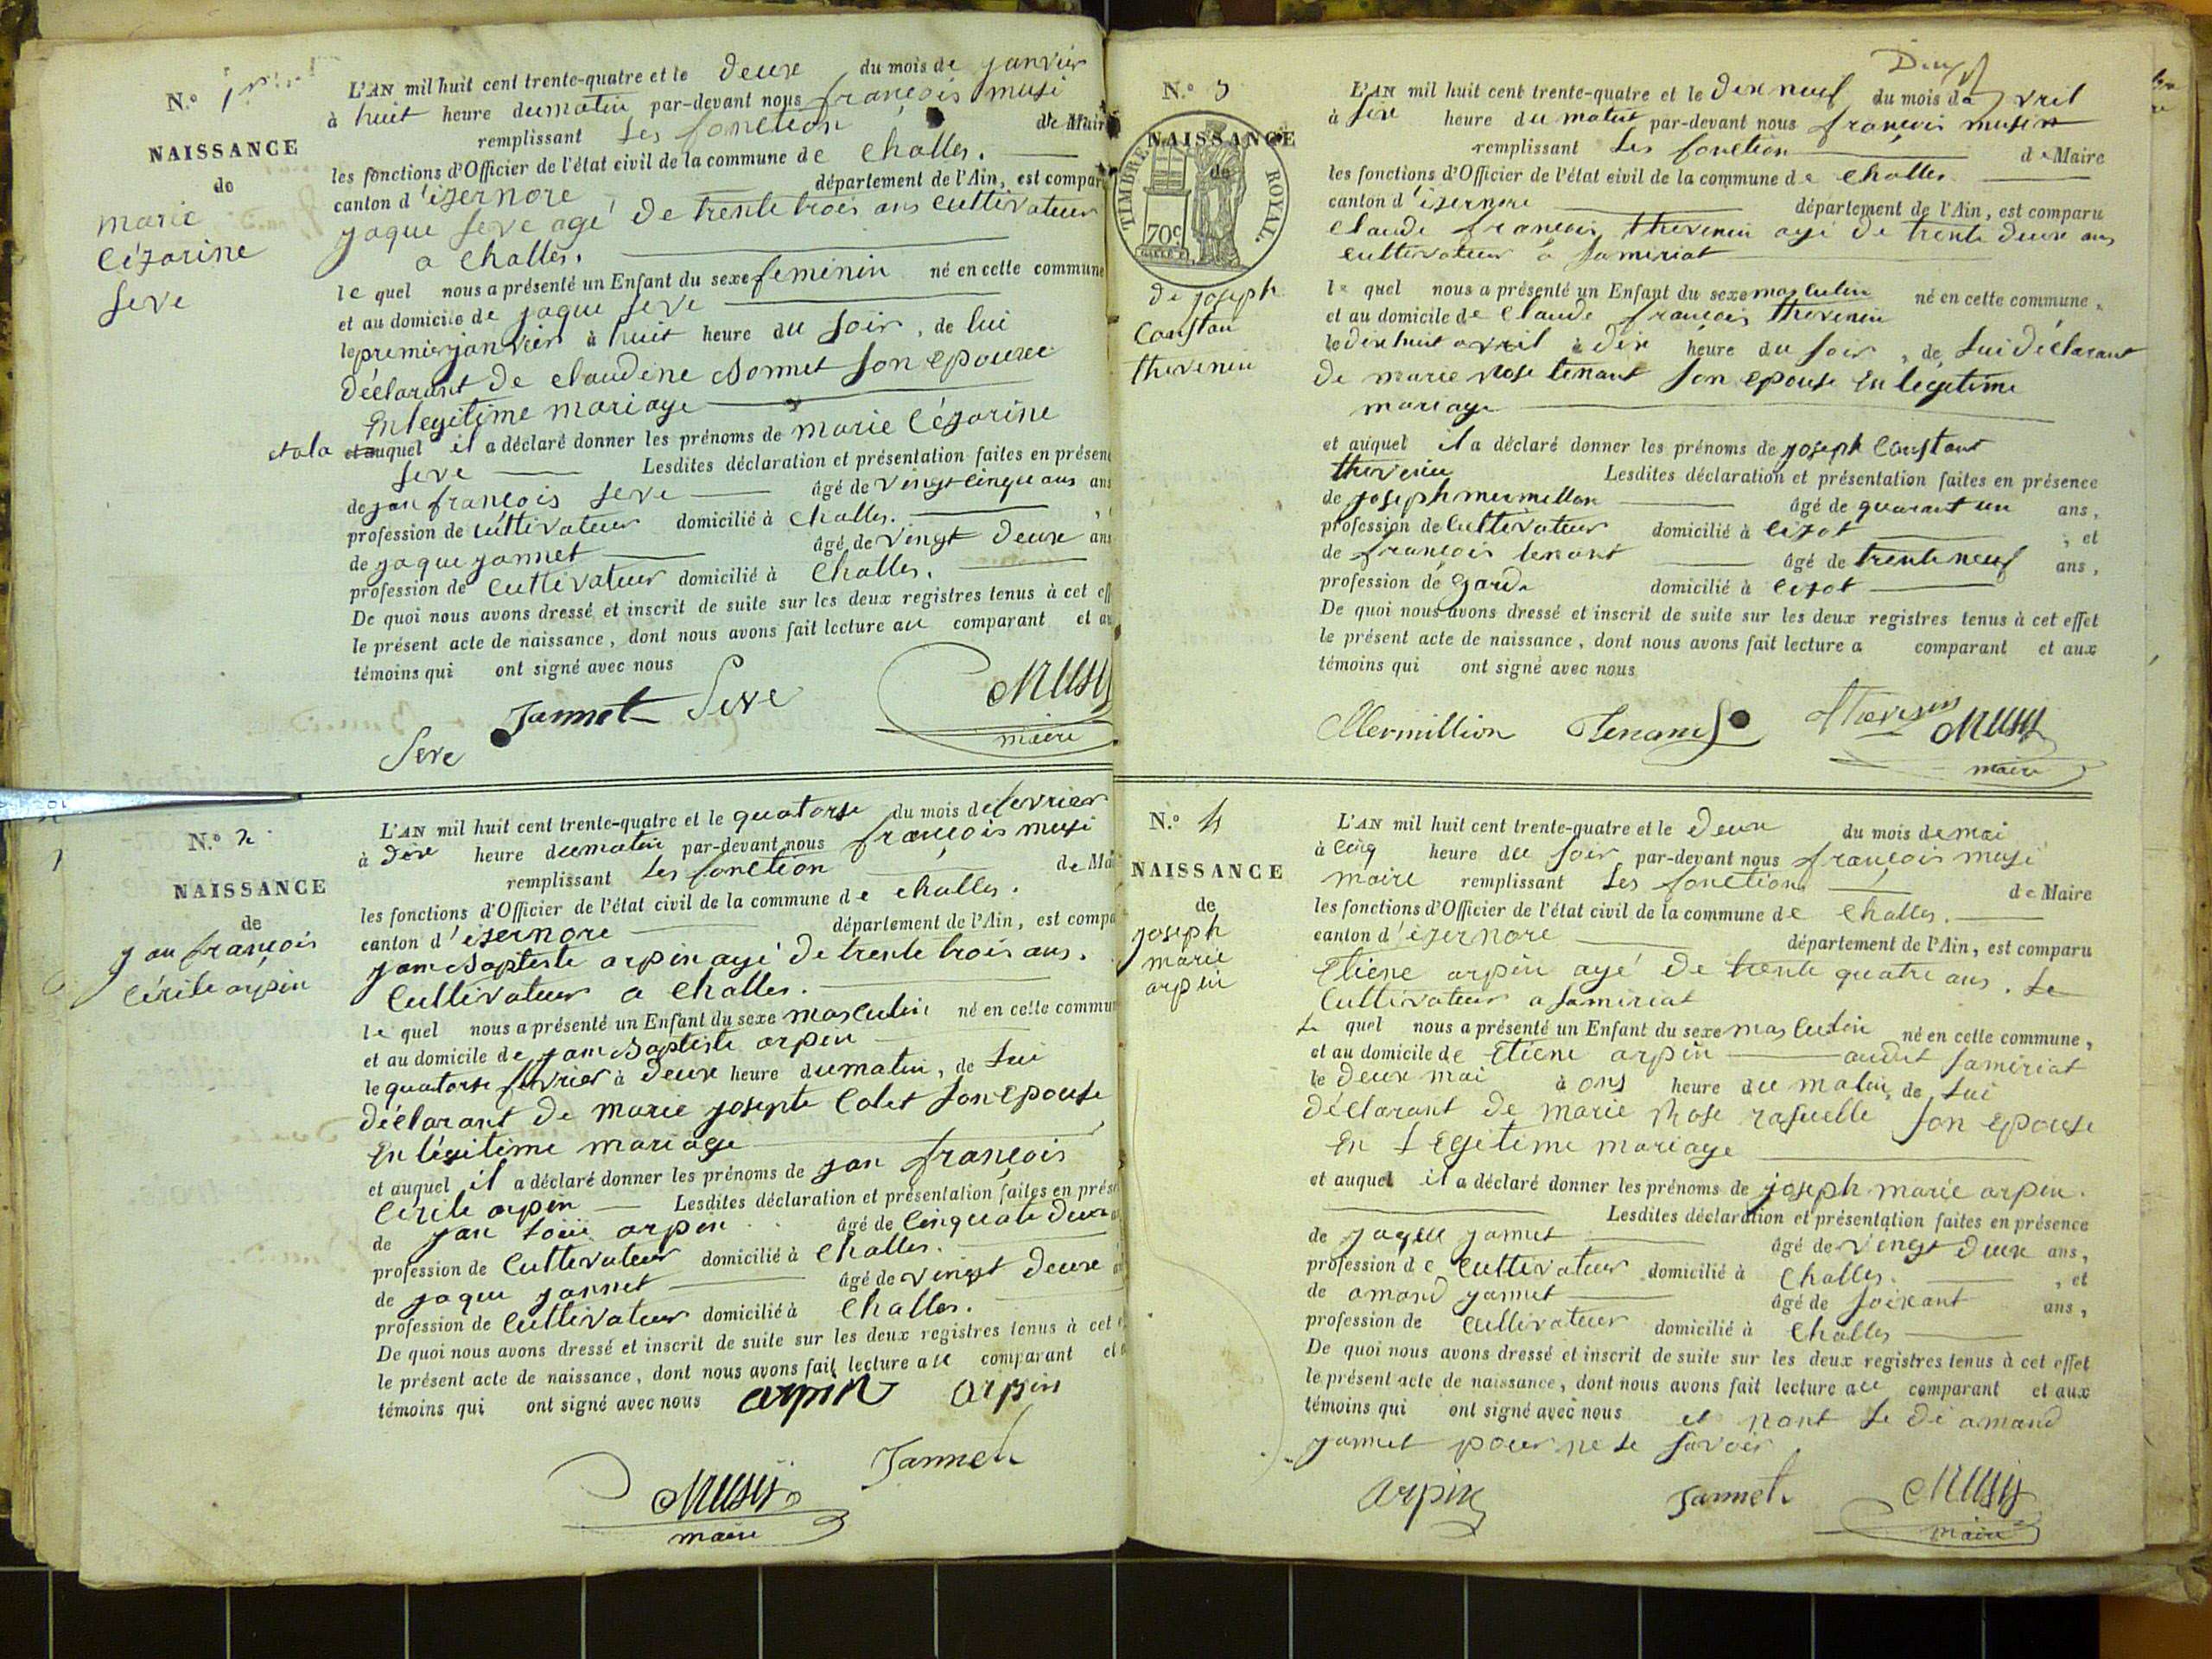 N.° 1er
NAISSANCE
de
marie
Cézarine
seve
L'AN mil huit cent trente-quatre et le deux du mois de janvier
à huit heure du matin par-devant nous françois musi
remplissant les fonction de Mair
les fonctions d'Officier de l'état civil de la commune de Challes.
canton d'izernore département de l'Ain, est compar
jaque seve agé de trente trois ans cultivateur
a Challes.
le quel nous a présenté un Enfant du sexe feminin né en cette commune
et au domicile de jaque seve
le premier janvier à huit heure du soir, de lui
déclarant de claudine Bonnet son epouse
En legitime mariage
et a la et auquel il a déclaré donner les prénoms de marie Cézarine
seve Lesdites déclaration et présentation faites en présen
de jan françois seve âgé de vingt cinque ans ans
profession de cultivateur domicilié à Challes.
de jaque jannet âgé de vingt deux ans
profession de cultivateur domicilié à Challes.
De quoi nous avons dressé et inscrit de suite sur les deux registres tenus à cet eff
le présent acte de naissance, dont nous avons fait lecture au comparant et au
témoins qui ont signé avec nous
Seve Jannet Seve Musy
maire
N.° 2
NAISSANCE
de
jan françois
Cérile arpin
L'AN mil huit cent trente-quatre et le quatorse du mois de fevrier
à dix heure du matin par-devant nous françois musi
remplissant les fonction de Mai
les fonctions d'Officier de l'état civil de la commune de challes.
canton d'izernore département de l'Ain, est compa
jam Baptiste arpin agé de trente trois ans.
Cultivateur a Challes.
le quel nous a présenté un Enfant du sexe masculin né en cette commun
et au domicile de jam Baptiste arpin
le quatorse fevrier à deux heure du matin, de lui
déclarant de marie josepte Colet son epouse
En légitime mariage
et auquel il a déclaré donner les prénoms de jan françois
Cérile arpin Lesdites déclaration et présentation faites en prése
de jan loui arpin âgé de Cinquate deux
profession de Cultivateur domicilié à Challes.
de jaque jannet âgé de vingt deux
profession de Cultivateur domicilié à Challes.
De quoi nous avons dressé et inscrit de suite sur les deux registres tenus à cet e
le présent acte de naissance, dont nous avons fait lecture au comparant et
témoins qui ont signé avec nous arpin arpin
Jannet
Musy
maire
N.° 3
NAISSANCE
de
TIMBRE ROYAL.
70c
de joseph
Constan
thevenin
L'AN mil huit cent trente-quatre et le dix neuf du mois da vril
à six heure du matin par-devant nous françois musi
remplissant les fonction de Maire
les fonctions d'Officier de l'état civil de la commune de Challes
canton d'izernore département de l'Ain, est comparu
Claude françois thevenin agé de trente deux ans
cultivateur à samériat
le quel nous a présenté un Enfant du sexe masculin né en cette commune,
et au domicile de Claude françois thevenin
le dix huit avril à dix heure du soir, de lui déclarant
de marie Rose tenant son epouse En légitime
mariage
et auquel il a déclaré donner les prénoms de joseph Constant
thevenin Lesdites déclaration et présentation faites en présence
de joseph mermillon âgé de quarant un ans,
profession de Cultivateur domicilié à cizot, et
de françois tenant âgé de trente neuf ans,
profession de garde domicilié à cizot
De quoi nous avons dressé et inscrit de suite sur les deux registres tenus à cet effet
le présent acte de naissance, dont nous avons fait lecture a comparant et aux
témoins qui ont signé avec nous
Mermillion Tenant Thevenin Musy
maire
N.° 4
NAISSANCE
de
joseph
marie
arpin
L'AN mil huit cent trente-quatre et le deux du mois de mai
à cinq heure du soir par-devant nous françois musi
maire remplissant les fonctions de Maire
les fonctions d'Officier de l'état civil de la commune de Challes.
canton d'izernore département de l'Ain, est comparu
Etiene arpin agé de trente quatre ans. le
Cultivateur a samériat
le quel nous a présenté un Enfant du sexe masculin né en cette commune,
et au domicile de Etiene arpin audit samériat
le deux mai à ons heure du matin, de lui
déclarant de marie Rose rafuelle son epouse
En Légitime mariage
et auquel il a déclaré donner les prénoms de joseph marie arpin.
Lesdites déclaration et présentation faites en présence
de jaque jannet âgé de vingt deux ans,
profession de Cultivateur domicilié à Challes. , et
de amand jannet âgé de soixant ans,
profession de cultivateur domicilié à Challes
De quoi nous avons dressé et inscrit de suite sur les deux registres tenus à cet effet
le présent acte de naissance, dont nous avons fait lecture au comparant et aux
témoins qui ont signé avec nous et nont le di amand
jannet pour ne le savoir
Arpin Jannet Musy
maire